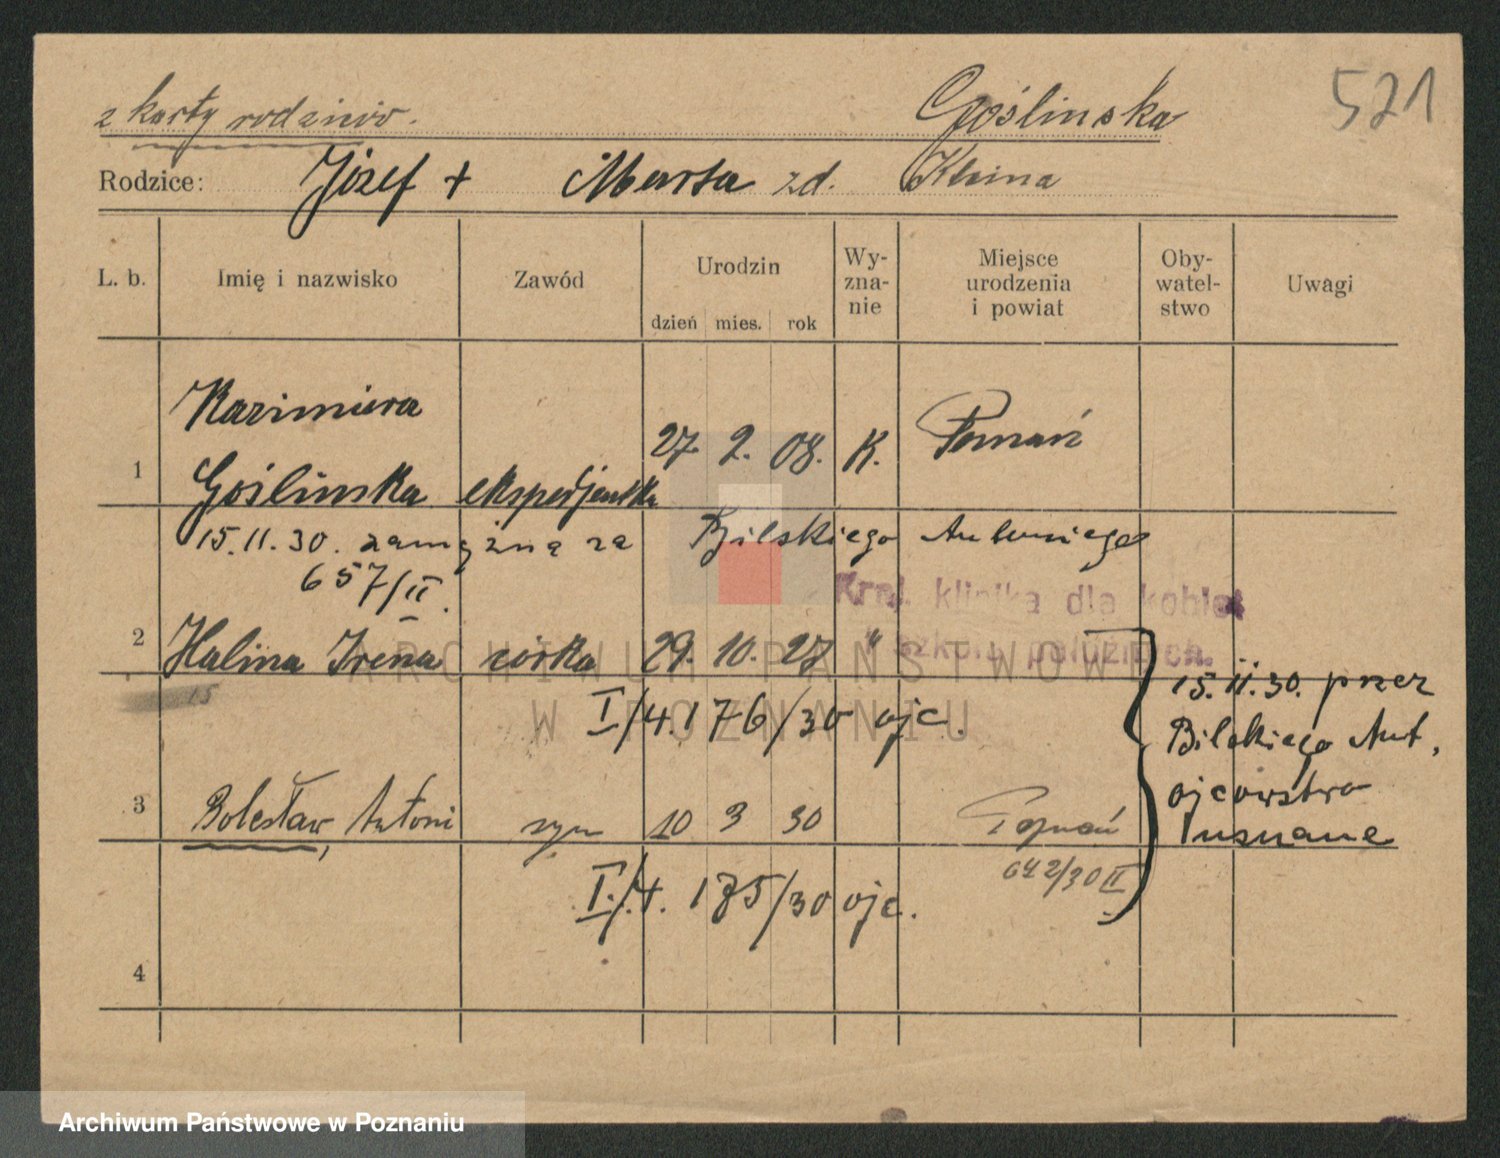 521
z karty rodziców. Goślinska
Rodzice: Józef + Marta zd. Kleina
L. b. Imię i nazwisko Zawód Urodzin Wy-zna-nie Miejsce urodzenia i powiat Oby-watel-stwo Uwagi
dzień mies. rok
Kazimiera
1 Goślinska ekspedjentka 27. 2. 08. K. Poznań
15.11.30. zamężna za Bilskiego Antoniego
657/II.
Kraj. klinika dla kobiet
i szkoła położnych.
2 Halina Irena córka 29. 10. 27 "
15
I/4.176/30 ojc.
15.11.30. przez
Bilskiego Ant,
ojcowstwo
uznane
3 Bolesław, Antoni syn 10 3 30 Poznań
642/30 II
I./4. 175/30 ojc.
4
ARCHIWUM PAŃSTWOWE
W POZNANIU
Archiwum Państwowe w Poznaniu